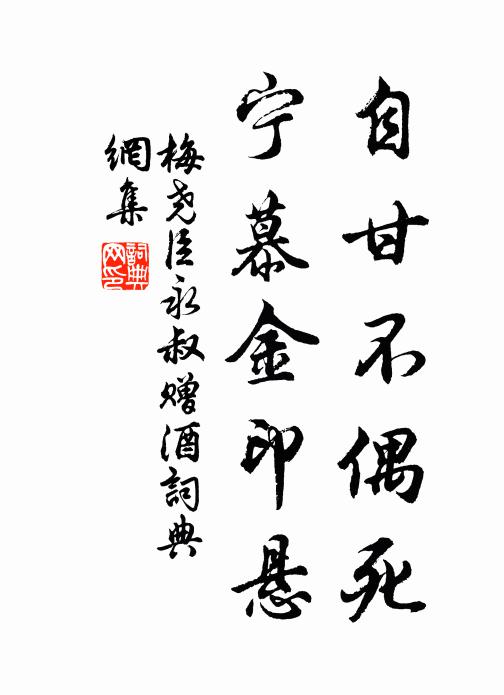 自甘不偶死
宁慕金印悬
梅尧臣永叔赠酒詞典
網集
詞典网印